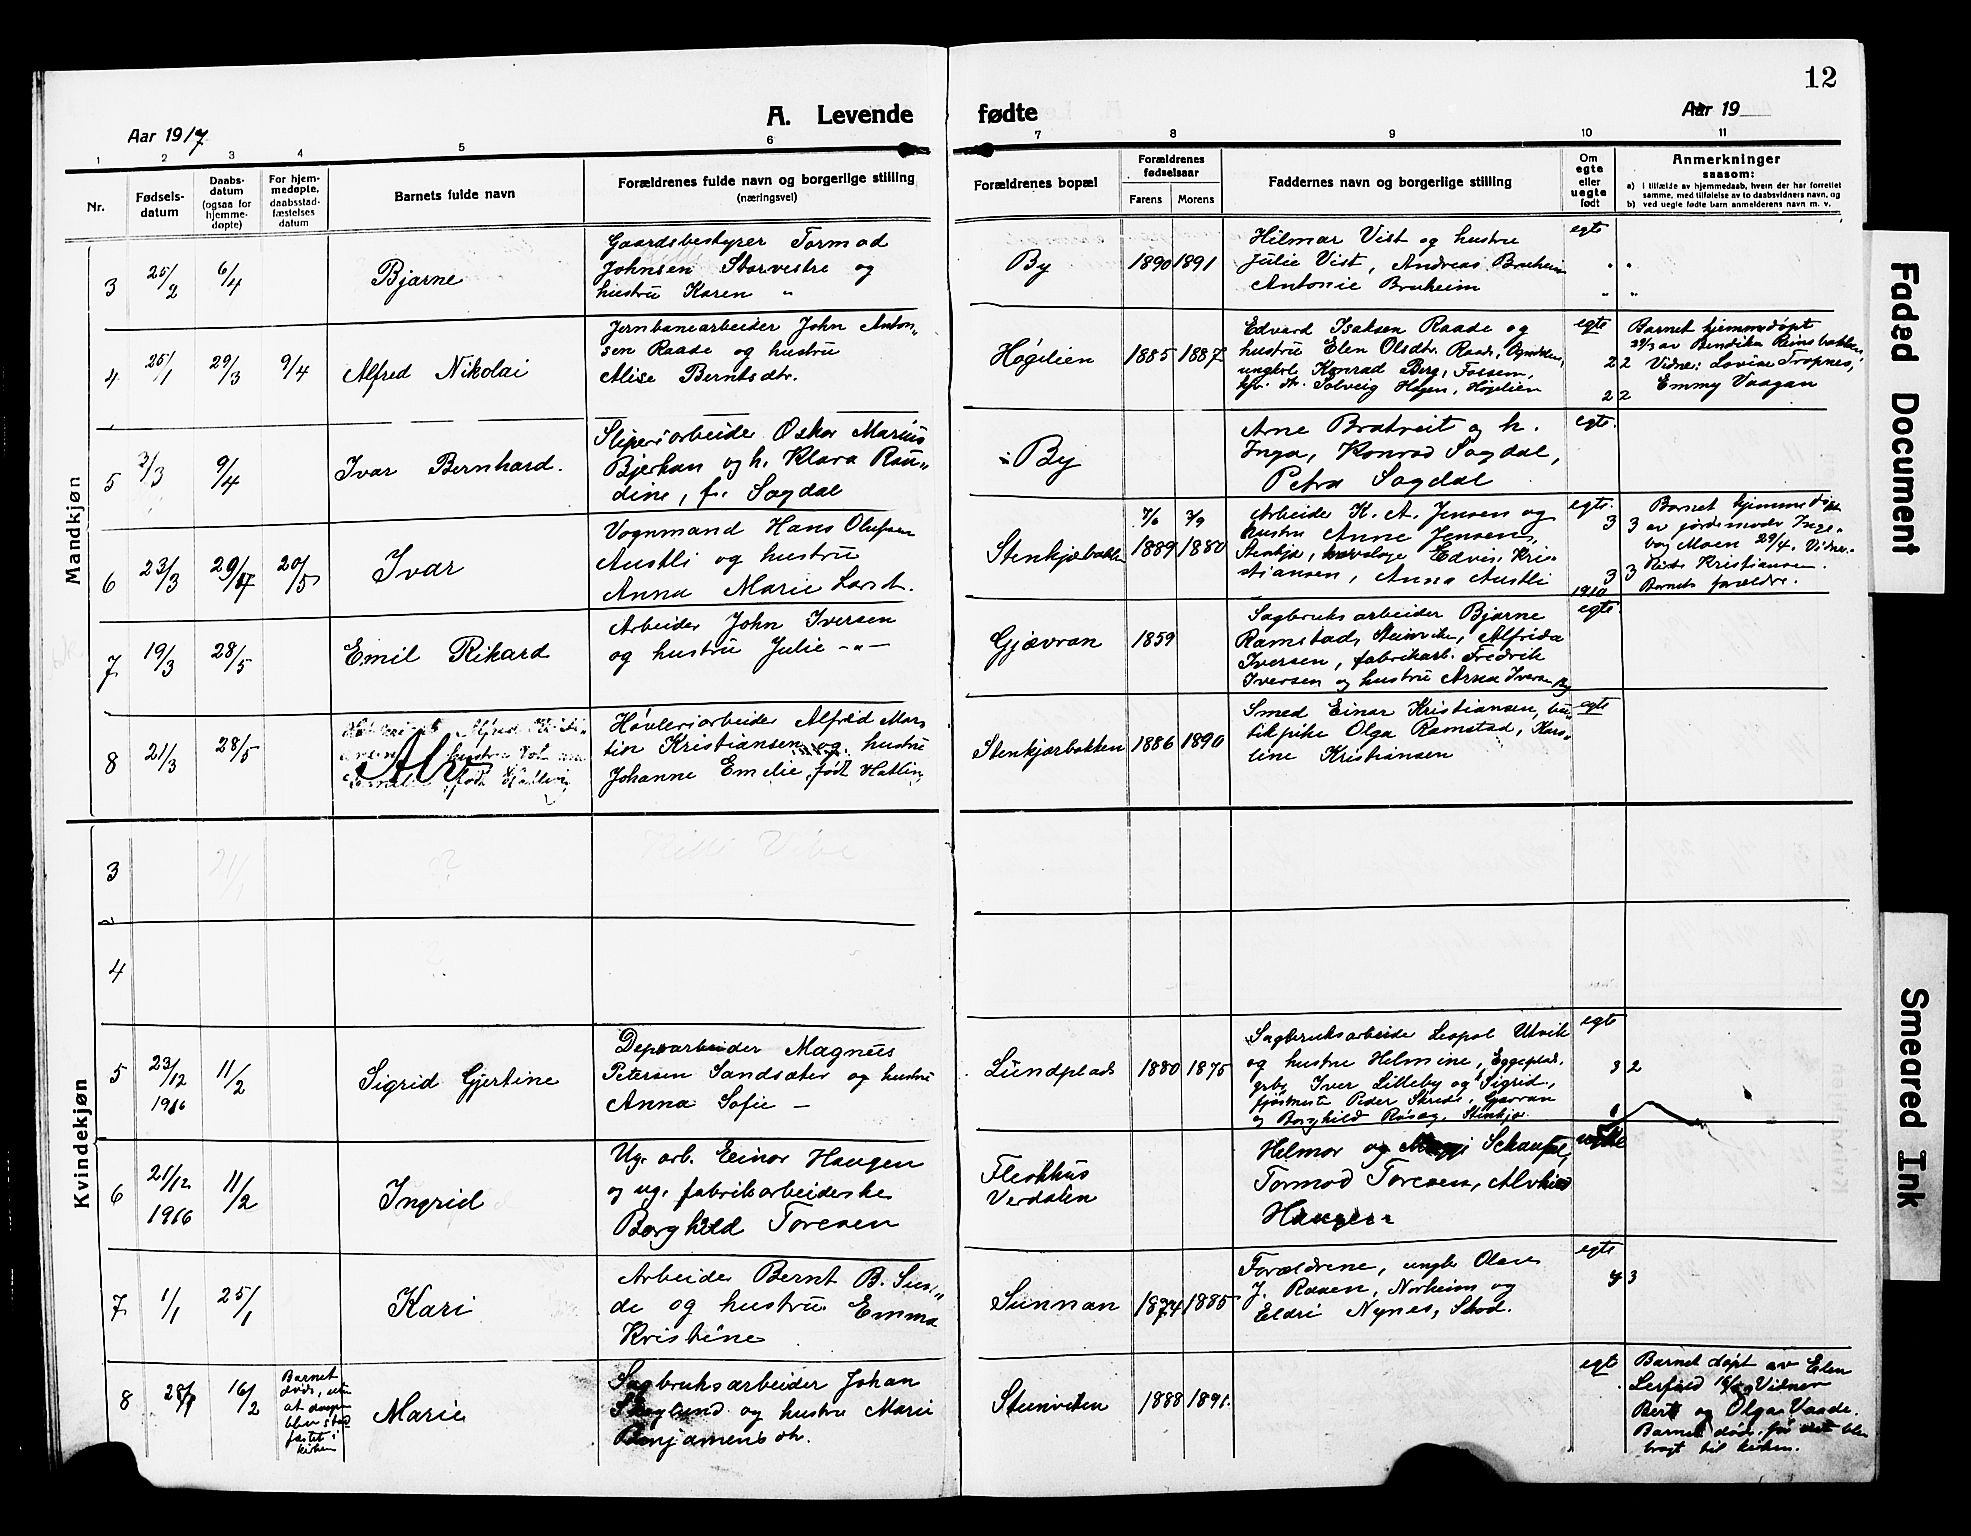 12
A. Levende fødte
Aar 1917
Aar 19
1 2 3 4 5 6 7 8 9 10 11
Nr.
Fødsels-
datum
Daabs-
datum
(ogsaa for
hjemme-
døpte)
For hjem-
medøpte,
daabsstad-
fæstelses
datum
Barnets fulde navn
Forældrenes fulde navn og borgerlige stilling
(næringsvei)
Forældrenes bopæl
Forældrenes
fødselsaar
Farens Morens
Faddernes navn og borgerlige stilling
Om
egte
eller
uegte
født
Anmerkninger
saasom:
a) i tilfælde av hjemmedaab, hvem der har forrettet
samme, med tilføielse av to daabsvidners navn, og
b) ved uegte fødte barn anmelderens navn m. v.
Mandkjøn
3 25/2 6/4 Bjarne
Gaardsbestyrer Tormod
Johnsen Storvestre og
hustru Karen "
By 1890 1891
Hilmar Vist og hustru
Julie Vist, Andreas Bruheim
Antonie Bruheim
egte
4 25/1 29/3 9/4 Alfred Nikolai
Jernbanearbeider John Anton-
sen Raade og hustru
Alise Berntsdtr.
Høgelien 1885 1887
Edvard Isaksen Raade og
hustru Elen Olsdtr. Raade,
ungkrl. Konrad Berg, Fossem,
Solveig Hagen, Høgelien
egte
2 2
2 2
Barnet hjemmedøpt
29/3 av Bendika Reinsbakken,
Vidne: Lovise Tropnes,
Emmy Vaagan
5 3/3 9/4 Ivar Bernhard.
Sliperiarbeider Oskar Marius
Bjerkan og h. Klara Rau-
dine, f. Sagdal
By
Arne Bratreit og h.
Inga, Konrad Sagdal,
Petra Sagdal
egte.
6 23/3 29/17 20/5 Ivar
Vognmand Hans Olufsen
Austli og hustru
Anna Marie Larsdt.
Stenkjærbakken 1889 1880
Arbeider K. A. Jensen og
hustru Anne Jensen,
Stenkjær, Edvin Kris-
tiansen, Anna Austli
egte.
3 3
3 3
Barnet hjemmedøpt
av jordmoder Inge-
borg Moen 29/4. Vidner
Kristiansen.
Barnets forældre.
7 19/3 28/5 Emil Rikard
Arbeider John Iversen
og hustru Julie -"-
Gjævran 1859
1910
egte
Sagbruksarbeider Bjarne
Ramstad, Alfrida
Iversen, fabrikarb. Fredrik
Iversen og hustru Anna Iversen By
8 21/3 28/5 Alf
Høvleriarbeider Alfred Mar-
tin Kristiansen og hustru
Johanne Emelie, født Hatling
Stenkjærbakken 1886 1890
Smed Einar Kristiansen, bu-
tikpike Olga Ramstad, Kars-
line Kristiansen
egte
Kvindekjøn
3
4
5 23/12 1916 11/2 Sigrid Gjertine
Depoarbeider Magnus
Petersen Sandsæter og hustru
Anna Sofie –
Lundplads 1880 1875
Sagbruksarbeide Leopol Utvik
og hustru Helmine, Eggeplad.
grb. Iver Lilleby og Sigrid,
Peder Skrede, Gjævran
og Borghild Stenkjær
egte
3 2
6 21/12 1916 11/2 Ingrid
Ug. arb. Einar Haugen
og ug. fabrikarbeiderske
Borghild Toresen
Fleskhus
Verdalen
Helmar og
Tormod Toresen, Alvhild
Haugen
7 1/1 25/1 Kari
Arbeider Bernt B. Sun-
de og hustru Emma
Kristine
Sunnan 1874 1885
Forældrene, ungk. Olav
J. Raaen, Norheim og
Eldri Nynes, Skod.
egte
4 3
8 28/1 16/2
Barnet
døde, uten
at daapen
blev stad
fæstet i
kirken
Marie
Sagbruksarbeider Johan
Skoglund og hustru Marie
Benjaminsdtr.
Steinviken 1888 1891.
egt
Barnet døpt av Elen
Lerfald 16/2 Vidner
Berit og Olga Vaade.
Barnet døde, før det blev
bragt til kirken.
Faded Document
Smeared Ink